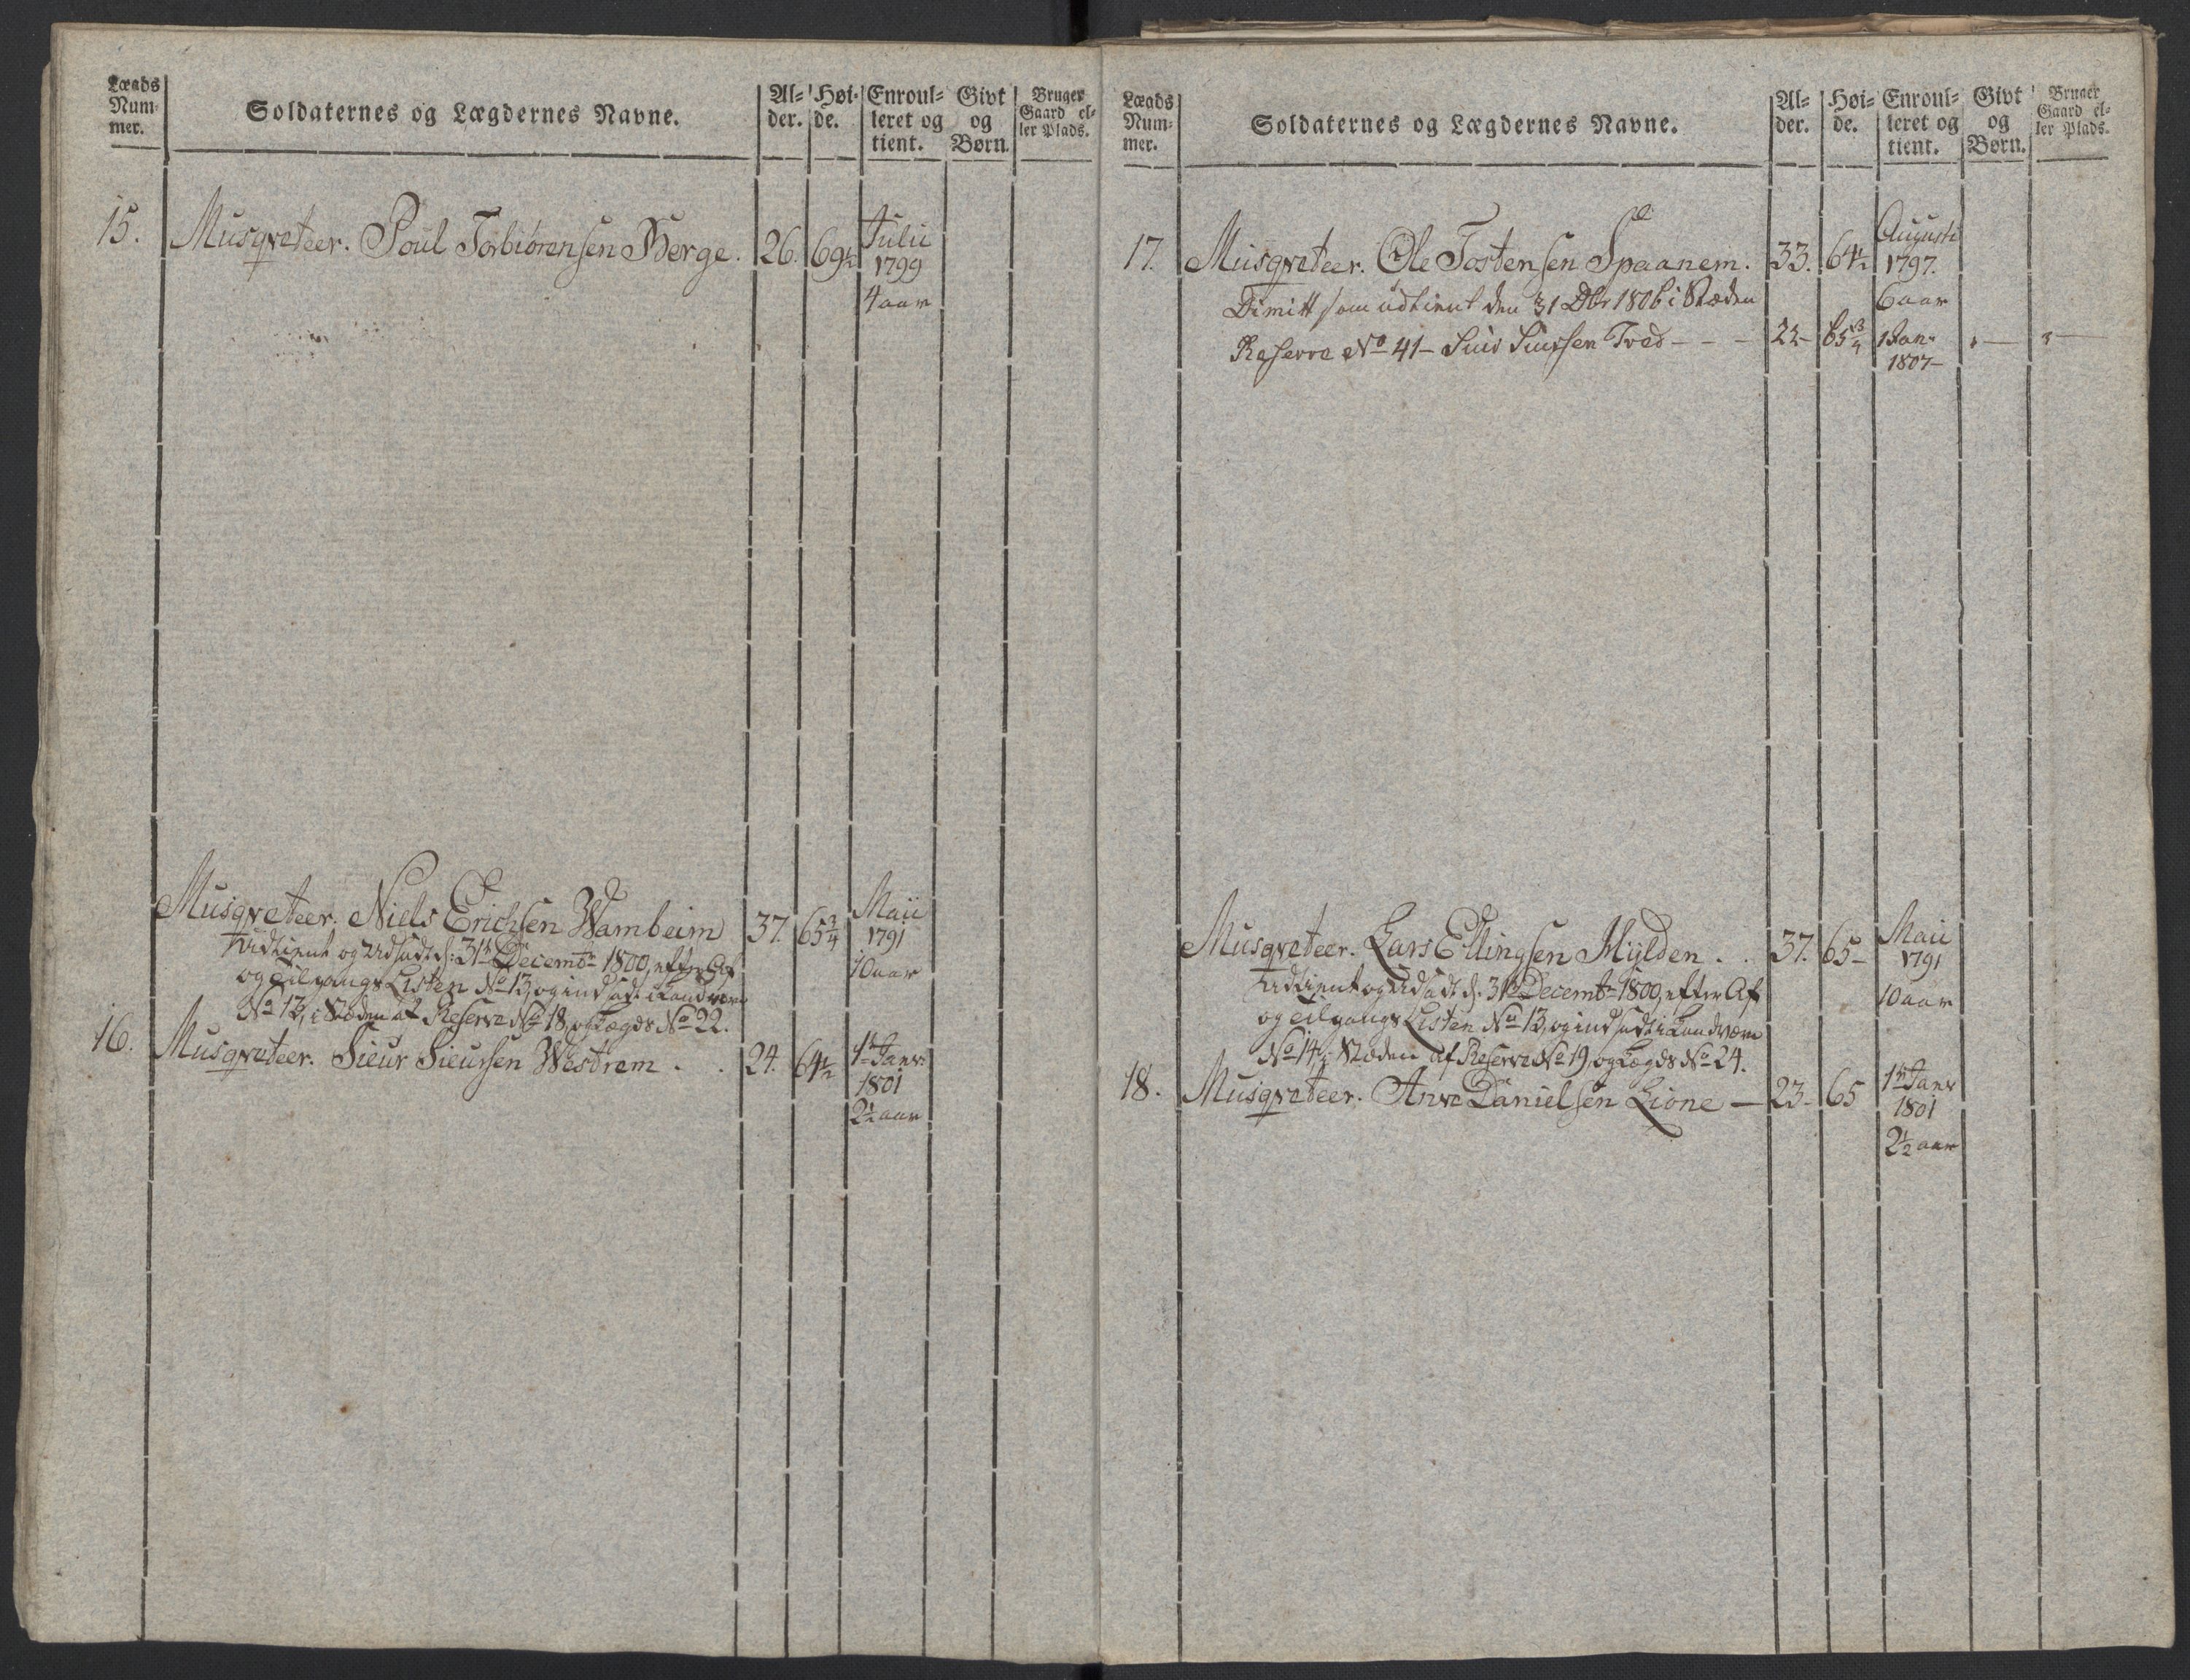 Lægds Num- mer.
Soldaternes og Lægdernes Navne.
Al- der.
Høi- de.
Enroul- leret og tient.
Givt og Børn.
Bruger Gaard el- ler Plads.
15. Musqveteer. Poul Torbiörensen Berge. 26. 69½ Julii
1799
4 aar
Musqveteer. Niels Erichsen Wambeim 37. 65¾ Maii
1791
10 aar
udtient og Udsadt d: 31te Decembr 1800, efter Af
og tilgangs Listen No 13, og indsadt i Landværn
No 13, i Stæden af Reserve No 18, og Lægds No 22.
16. Musqveteer. Sieur Sieursen Westrem . . 24. 64½ 1te Janr.
1801
2½ aar
Lægds Num- mer.
Soldaternes og Lægdernes Navne.
Al- der.
Høi- de.
Enroul- leret og tient.
Givt og Børn.
Bruger Gaard el- ler Plads.
17. Musqveteer. Ole Tostensen Spaanem. 33. 64½ Augusti
1797.
6 aar
Dimitt som udtient den 31 Dbr 1806 i Stæden
Reserve No 41 - Siur Siursen Tved - - - 22- 65¾ 1 Janr
1807-
Musqveteer. Lars Ellingsen Mylden . . 37. 65- Maii
1791
10 aar
udtient og Udsadt d. 31te Decembr 1800, efter Af
og tilgangs Listen No 13, og indsadt i Landværn
No 14, i Stæden af Reserve No 19, og Lægds No 24.
18. Musqveteer. Arve Danielsen Lione — 23- 65 1te Janr
1801
2½ aar